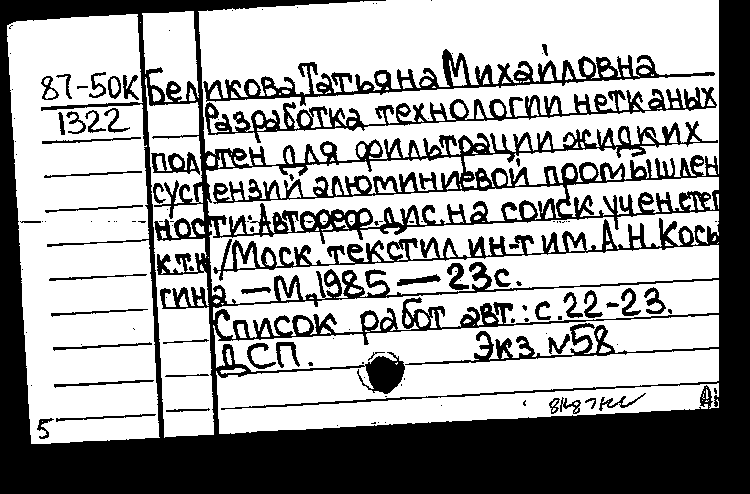 87-50К Беликова, Татьяна Михайловна
1322 Разработка технологии нетканых
полотен для фильтрации жидких
суспензий алюминиевой промышлен
ности: Автореф. дис. на соиск. учен. степ
к.т.н. /Моск. текстил. ин-т им. А.Н. Косы
гина. — М., 1985. — 23с.
Список работ авт.: с. 22-23.
ДСП. Экз. №58.
5